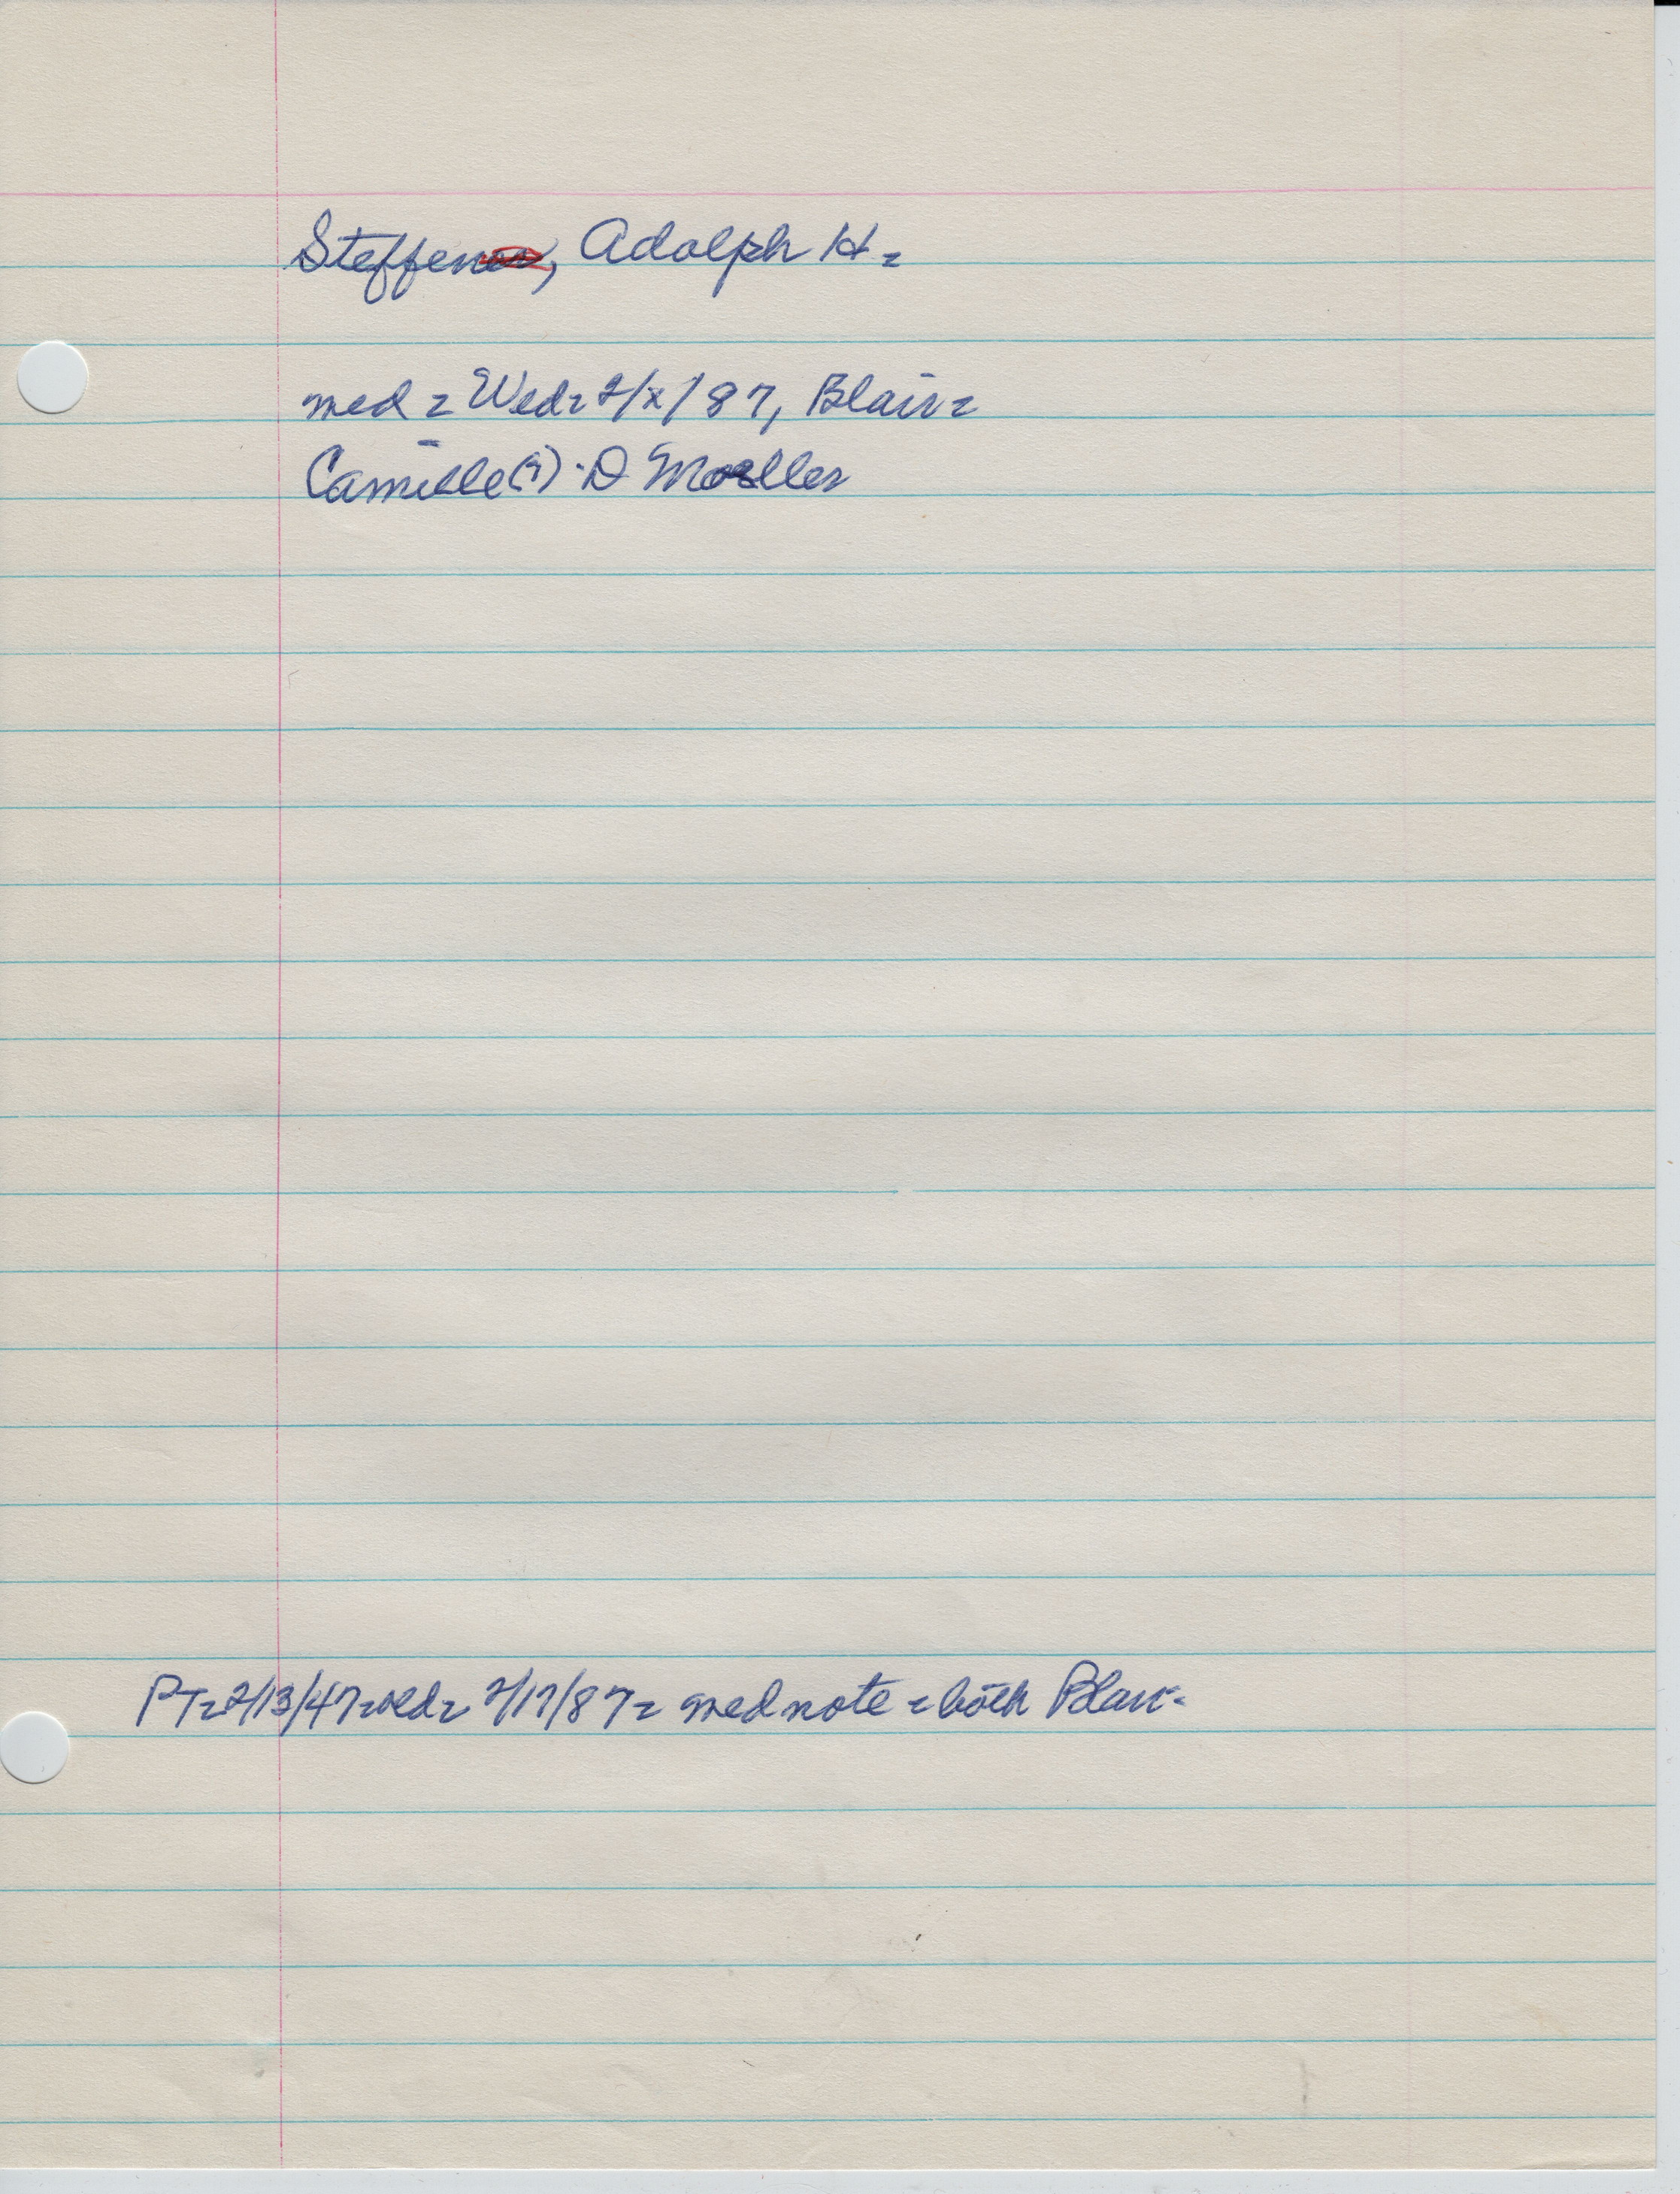 Steffen, Adolph H =
med = Wed = 2/x/87, Blair =
Camille(?) D Moeller
PT = 2/13/47 = Wed = 2/17/87 = med note = both Blair =